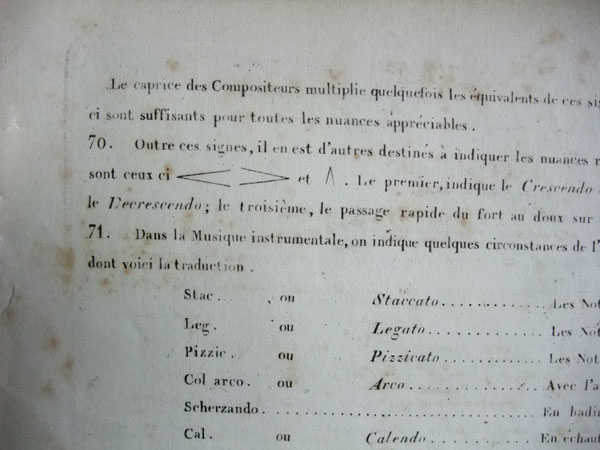 Le caprice des Compositeurs multiplie quelquefois les équivalents de ces
ci sont suffisants pour toutes les nuances appréciables.
70. Outre ces signes, il en est d'autres destinés à indiquer les nuances
sont ceux ci < > et Λ. Le premier, indique le Crescendo
le Decrescendo; le troisième, le passage rapide du fort au doux sur
71. Dans la Musique instrumentale, on indique quelques circonstances de l'
dont voici la traduction.
Stac. ou Staccato........... Les Not
Leg. ou Legato........... Les Not
Pizzic. ou Pizzicato........... Les Not
Col arco. ou Arco........... Avec l'a
Scherzando........................ En badi
Cal. ou Calendo........... En échauf